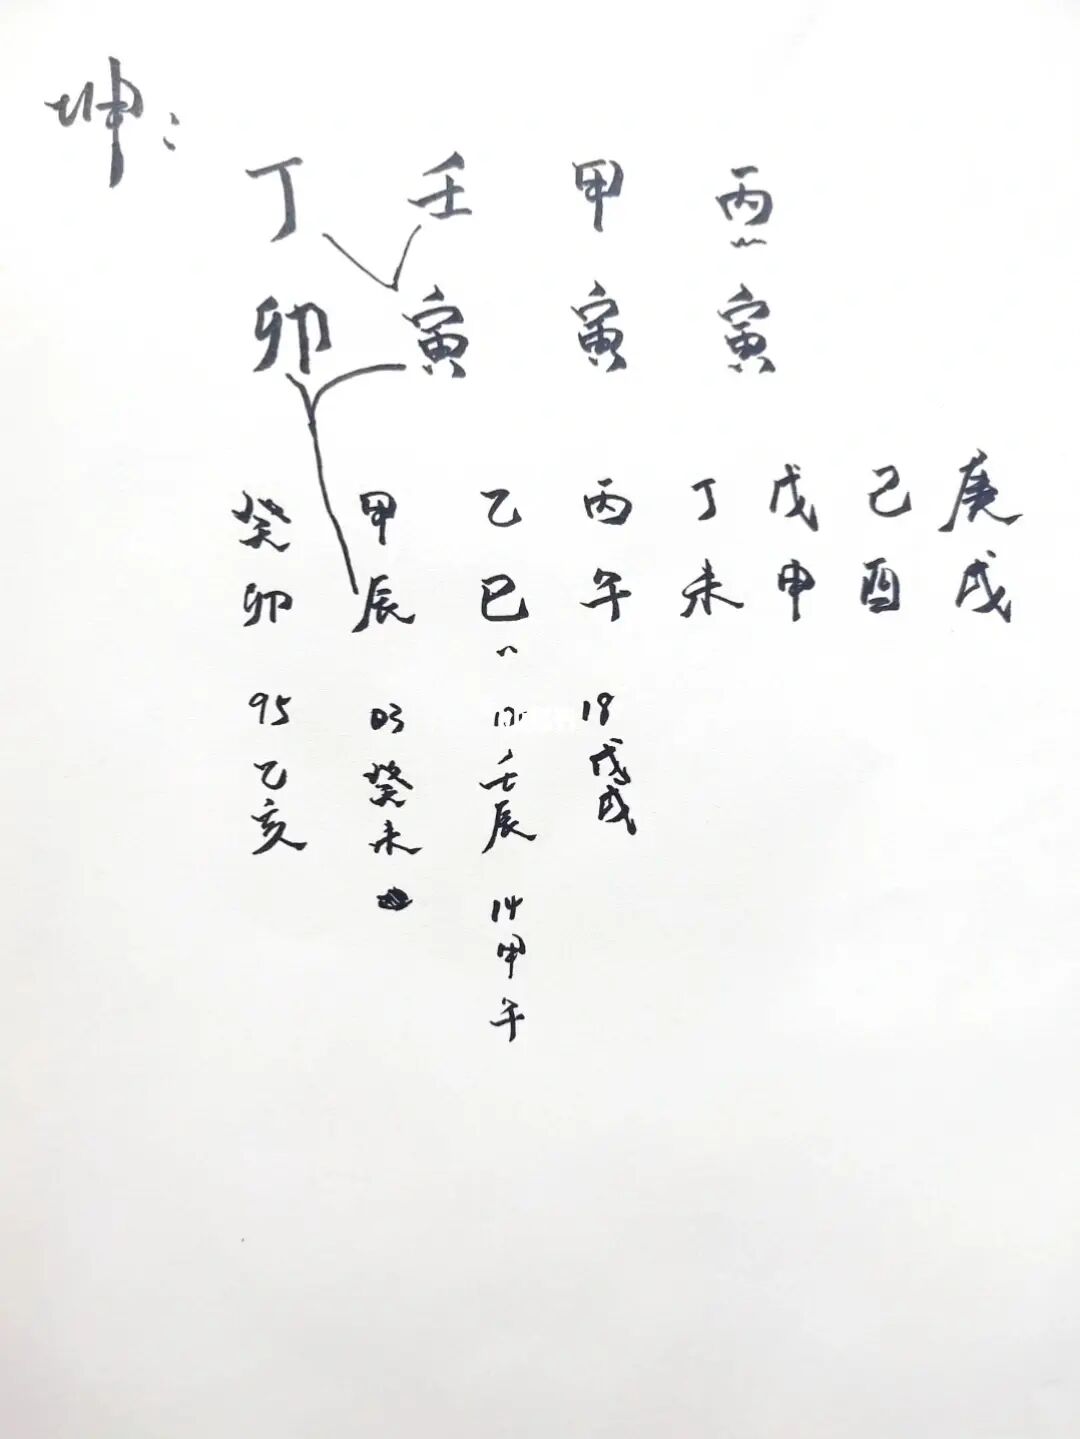 坤:
丁 壬 甲 丙
卯 寅 寅 寅
癸 甲 乙 丙 丁 戊 己 庚
卯 辰 巳 午 未 申 酉 戌
95 03 18
乙 癸 壬 戊
亥 未 辰 戌
14
甲
午